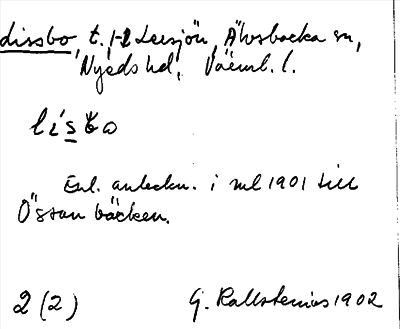 dissbo, t. 1-2 Lersjön, Älvsbacka sn,
Nyeds hd, Värml. l.
Enl. anteckn. i ml 1901 till
Östanbäcken.
2 (2) G. Kallstenius 1902